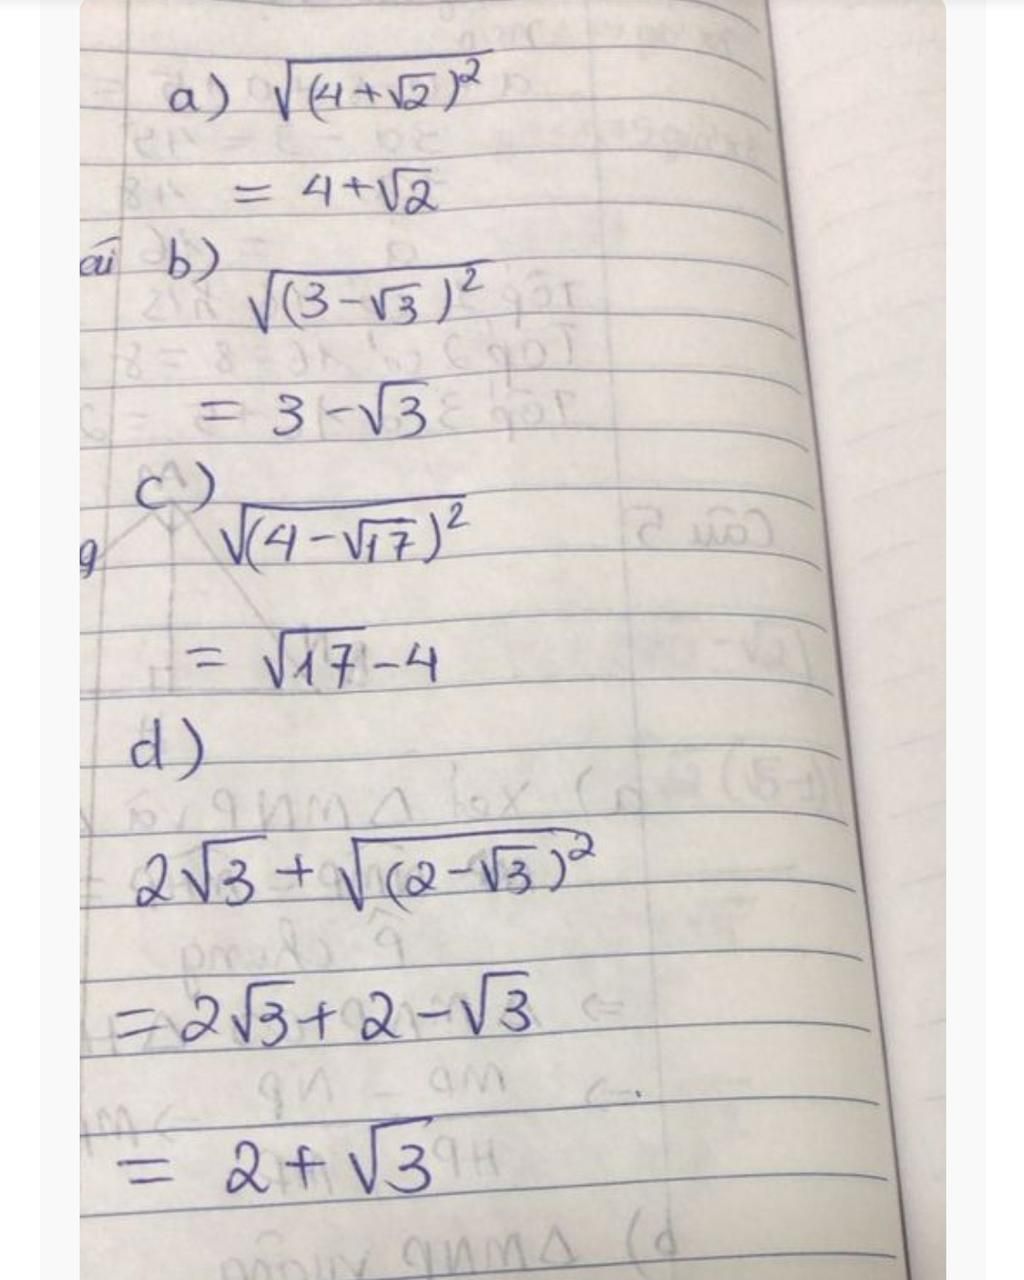 a) √(4+√2)²
= 4+√2
b)
√(3-√3)²
= 3-√3
c)
√(4-√17)²
= √17-4
d)
2√3+√(2-√3)²
=2√3+2-√3
= 2+√3